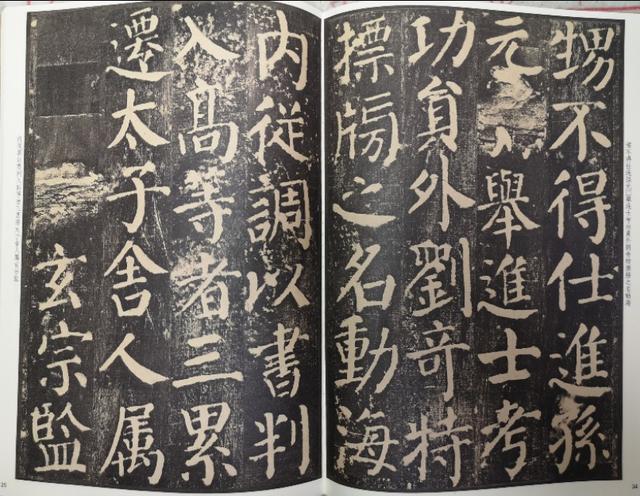 甥不得仕進孫
元舉進士考
功員外劉奇特
摽牓之名動海
内從調以書判
入髙等者三累
遷太子舍人属
玄宗監
34
35